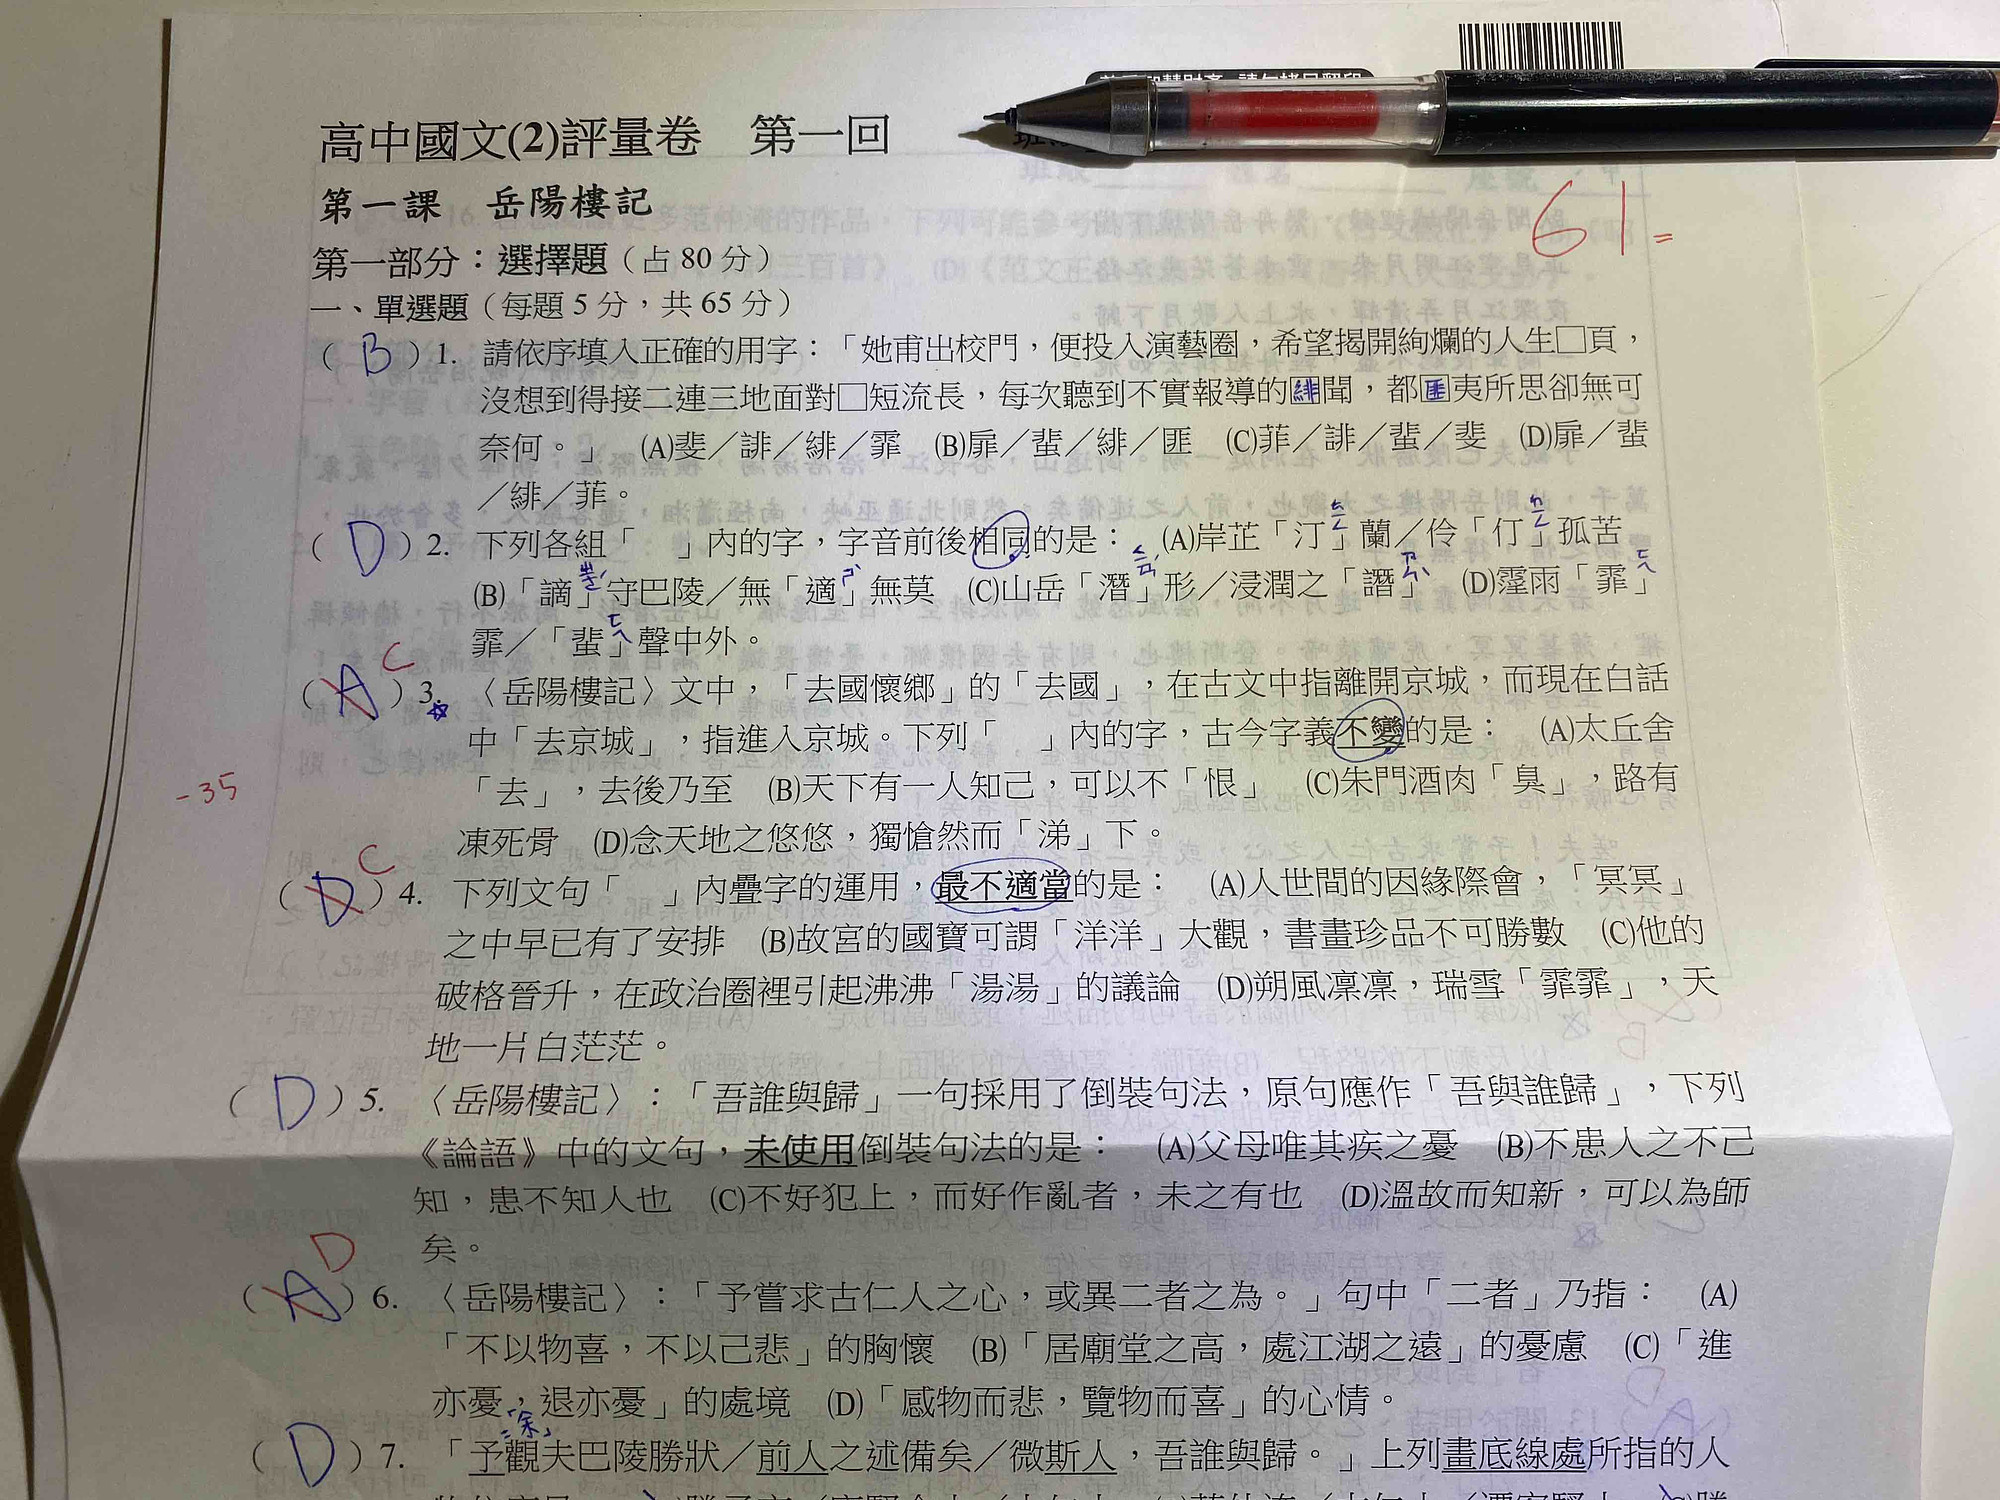 高中國文(2)評量卷　第一回
61
第一課　岳陽樓記
第一部分：選擇題（占 80 分）
一、單選題（每題 5 分，共 65 分）
（ B ）1. 請依序填入正確的用字：「她甫出校門，便投入演藝圈，希望揭開絢爛的人生□頁，
沒想到得接二連三地面對□短流長，每次聽到不實報導的緋聞，都匪夷所思卻無可
奈何。」　(A)斐／誹／緋／霏　(B)扉／蜚／緋／匪　(C)菲／誹／蜚／斐　(D)扉／蜚
／緋／菲。
（ D ）2. 下列各組「　」內的字，字音前後相同的是：　(A)岸芷「汀」蘭／伶「仃」孤苦
(B)「謫」守巴陵／無「適」無莫　(C)山岳「潛」形／浸潤之「譖」　(D)霪雨「霏」
霏／「蜚」聲中外。
C
（ A ）3. 〈岳陽樓記〉文中，「去國懷鄉」的「去國」，在古文中指離開京城，而現在白話
中「去京城」，指進入京城。下列「　」內的字，古今字義不變的是：　(A)太丘舍
-35
「去」，去後乃至　(B)天下有一人知己，可以不「恨」　(C)朱門酒肉「臭」，路有
凍死骨　(D)念天地之悠悠，獨愴然而「涕」下。
C
（ D ）4. 下列文句「　」內疊字的運用，最不適當的是：　(A)人世間的因緣際會，「冥冥」
之中早已有了安排　(B)故宮的國寶可謂「洋洋」大觀，書畫珍品不可勝數　(C)他的
破格晉升，在政治圈裡引起沸沸「湯湯」的議論　(D)朔風凜凜，瑞雪「霏霏」，天
地一片白茫茫。
（ D ）5. 〈岳陽樓記〉：「吾誰與歸」一句採用了倒裝句法，原句應作「吾與誰歸」，下列
《論語》中的文句，未使用倒裝句法的是：　(A)父母唯其疾之憂　(B)不患人之不己
知，患不知人也　(C)不好犯上，而好作亂者，未之有也　(D)溫故而知新，可以為師
矣。
D
（ A ）6. 〈岳陽樓記〉：「予嘗求古仁人之心，或異二者之為。」句中「二者」乃指：　(A)
「不以物喜，不以己悲」的胸懷　(B)「居廟堂之高，處江湖之遠」的憂慮　(C)「進
亦憂，退亦憂」的處境　(D)「感物而悲，覽物而喜」的心情。
=「余」
（ D ）7. 「予觀夫巴陵勝狀／前人之述備矣／微斯人，吾誰與歸。」上列畫底線處所指的人